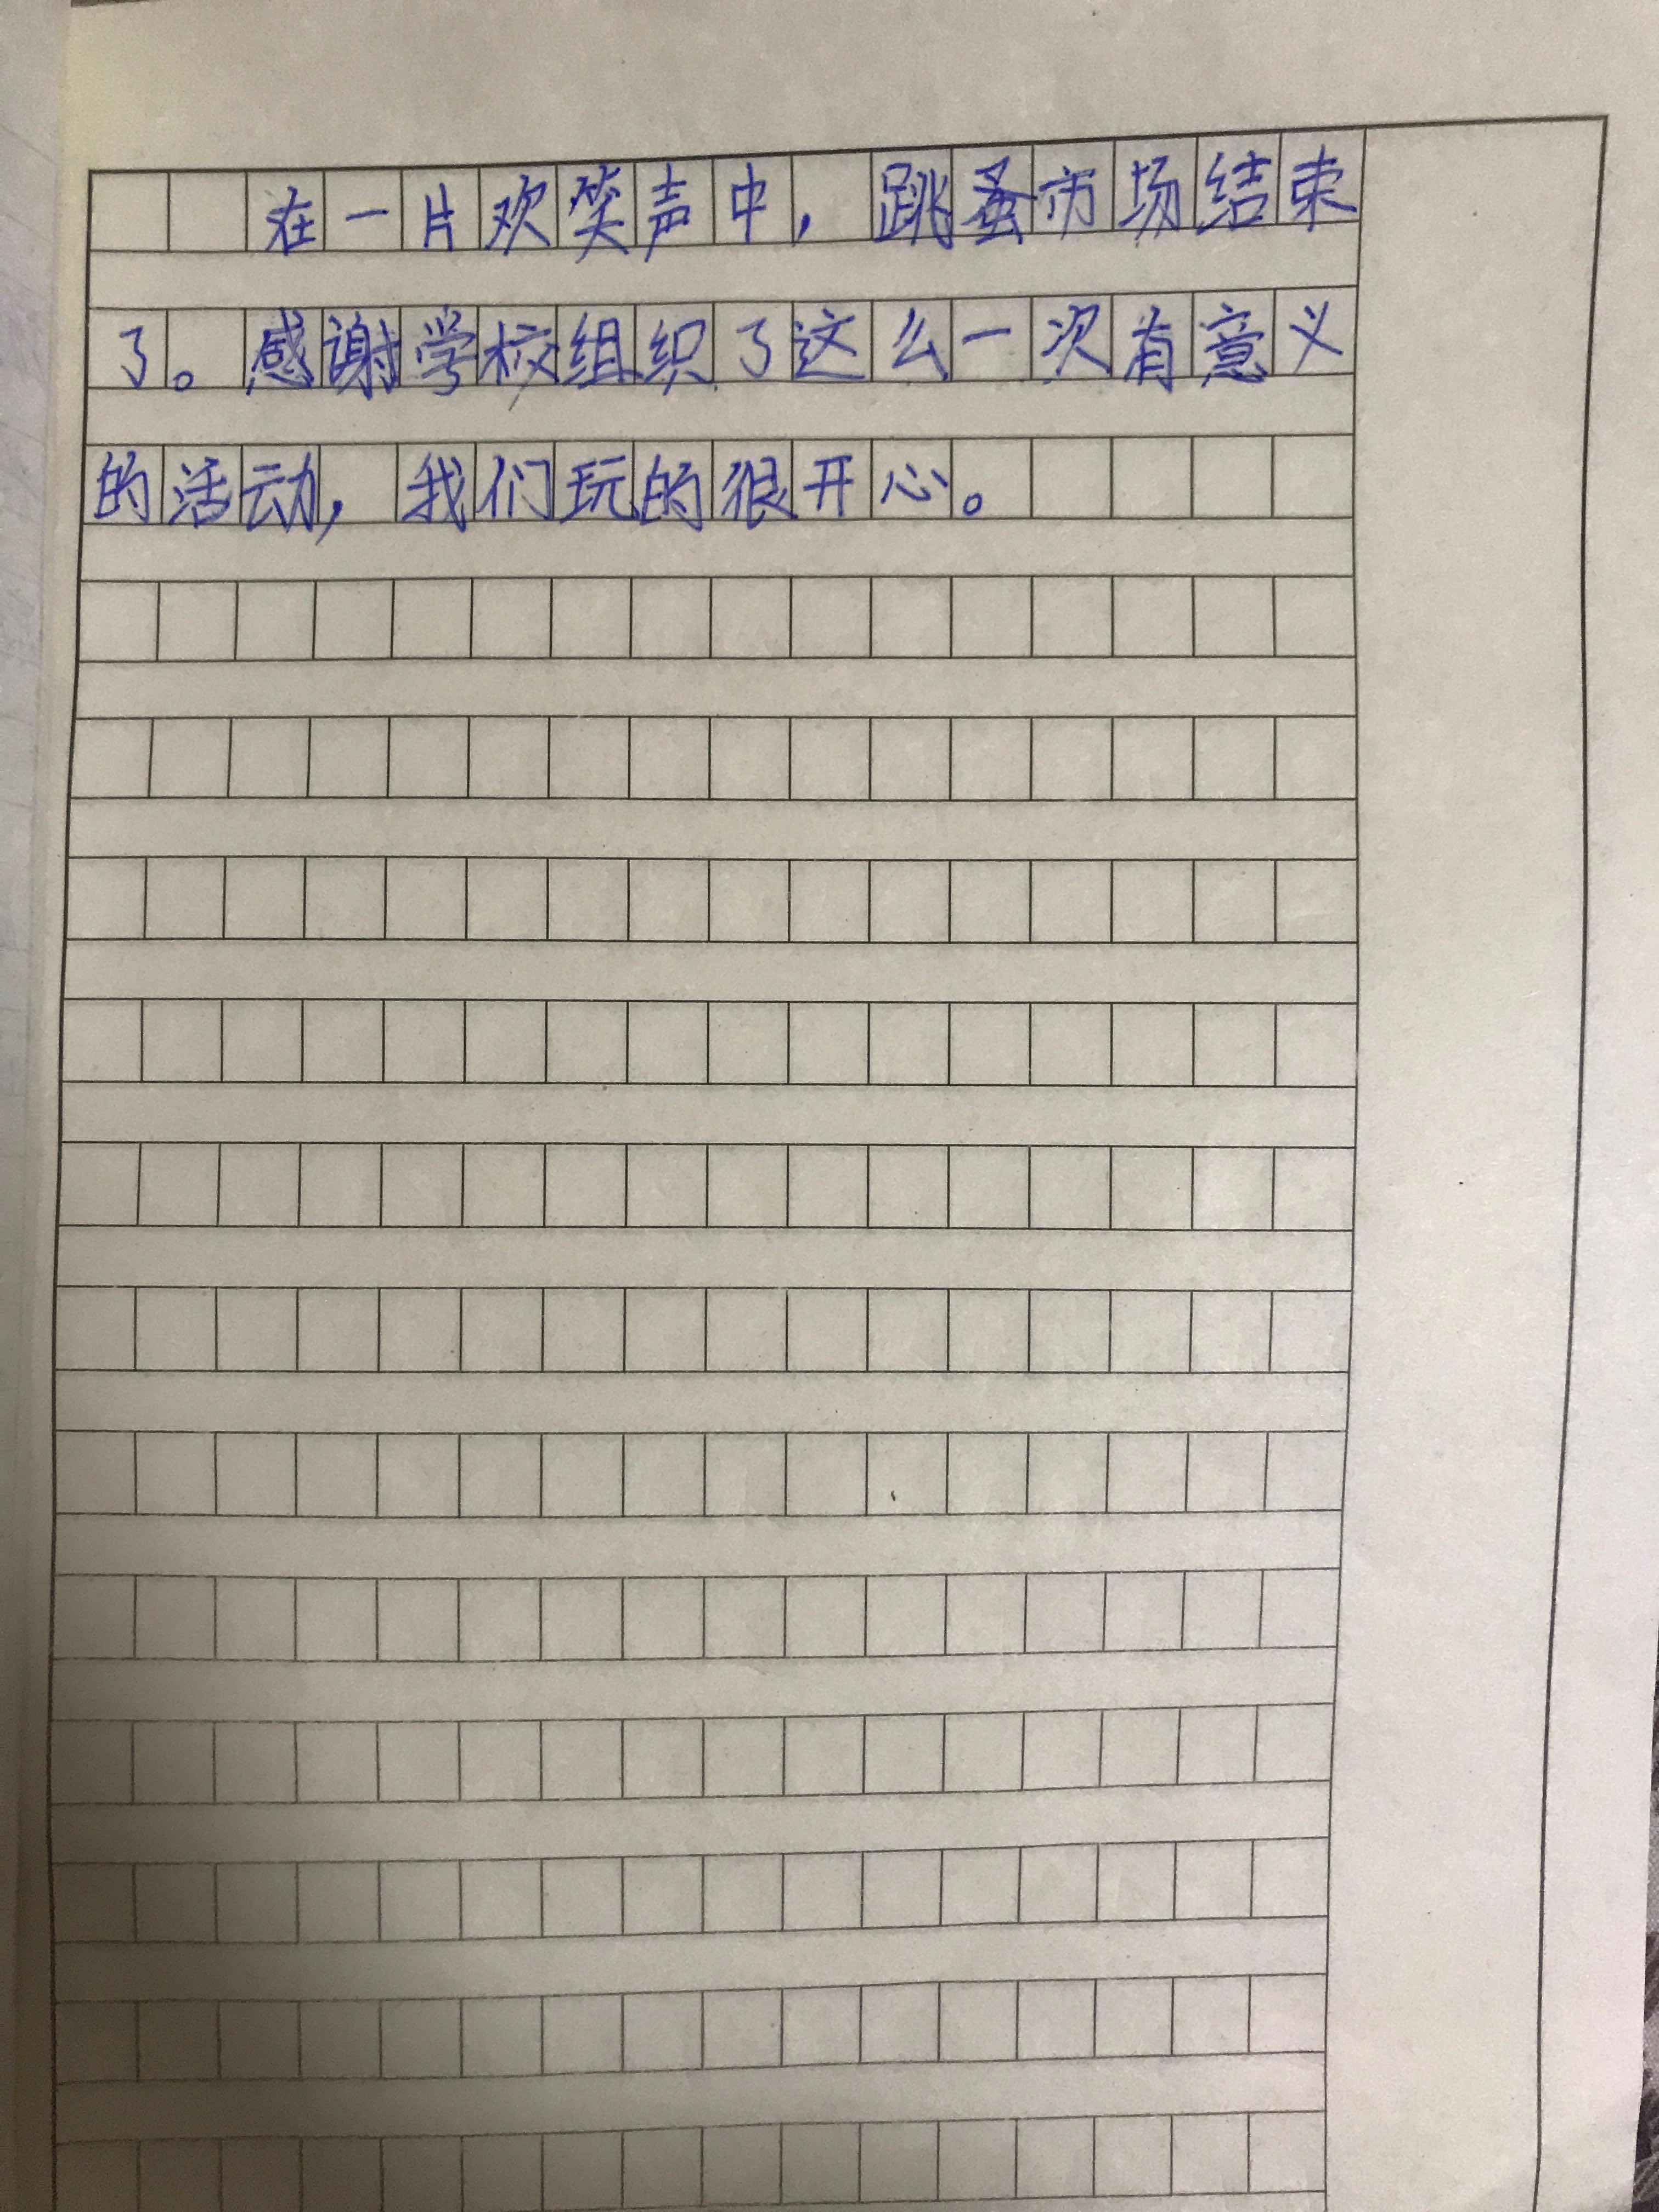 在一片欢笑声中，跳蚤市场结束
了。感谢学校组织了这么一次有意义
的活动，我们玩的很开心。